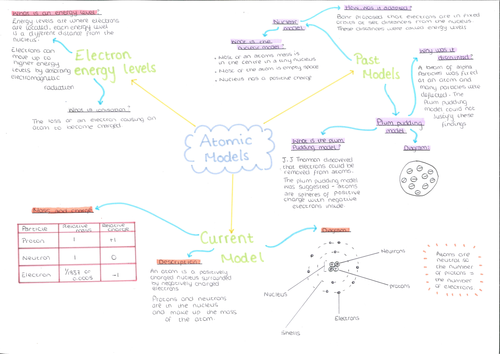 What is an energy level?
Energy levels are where electrons
are located, each energy level
is a different distance from the
nucleus.
Electrons can
move up to
higher energy
levels by absorbing
electromagnetic
radiation
Electron
energy levels
What is ionisation?
The loss of an electron causing an
atom to become charged.
Nuclear
model
What is the
nuclear model?
• Most of an atoms mass is
in the centre in a tiny nucleus
• Most of the atom is empty space
• Nucleus has a positive charge
How was it adapted?
Bohr proposed that electrons are in fixed
orbits at set distances from the nucleus.
These distances were called energy levels
Past
Models
Why was it
A beam of alpha
Particles was fired
at an atom and
many particles were
deflected. The
Plum pudding
model could not
justify these
findings
Plum pudding
model
Diagram:
What is the plum
Pudding model?
J.J Thomson discovered
that electrons could be
removed from atoms.
The plum pudding model
was suggested - atoms
are spheres of positive
charge with negative
electrons inside.
Atomic
Models
Mass and charge
Particle
Relative
mass
Relative
charge
Proton
1
+1
Neutron
1
0
Electron
-1
Current
Model
Description:
An atom is a positively
charged nucleus surrounded
by negatively charged
electrons
Protons and neutrons
are in the nucleus
and make up the mass
of the atom.
Diagram:
Neutrons
protons
Nucleus
Shells
Electrons
Atoms are
neutral so
the number
of protons =
the number
of electrons